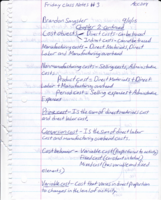 Friday Class Notes #1
Brandon Sangster 9/6/13
Chapter 2 continued
Cost object > Direct cost-
Indirect costs-
Manufacturing costs- Direct Materials, Direct
Labor and Manufacturing overhead
Nonmanufacturing costs- Selling costs, Administrative
Costs.
Product costs = Direct Materials + Direct
Labor + Manufacturing overhead
Period costs = Selling expense + Administrative
Expense
Prime cost- is the sum of direct materials cost
and direct labor cost,
Conversion cost- is the sum of direct labor
cost and manufacturing overhead costs.
Cost behavior- Variable cost (proportionate to activity)
Fixed cost (constant in total)
Mixed cost (has variable and fixed
elements)
Variable cost- Cost that varies in direct proportion
to changes in the level of activity.